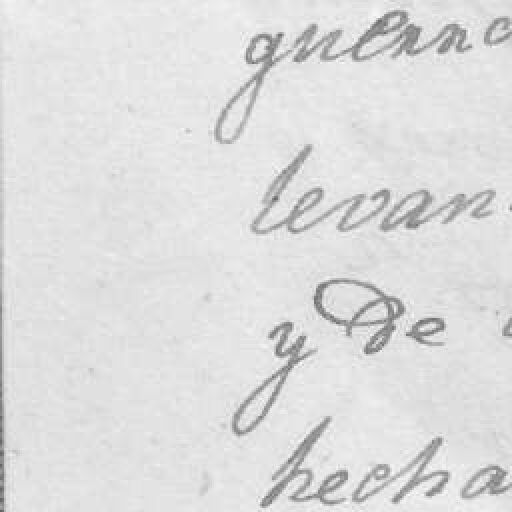 guerra
levan
y de
hecha